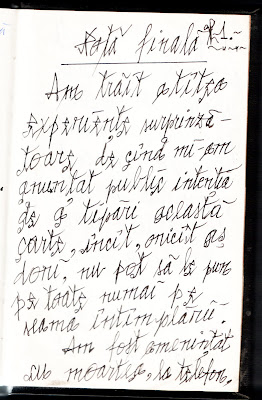 Notă finală
Am trăit atîtea
experiențe surprinză-
toare, de cînd mi-am
anunțat public intenția
de a tipări această
carte, încît, oricît aș
dori, nu pot să le pun
pe toate numai pe
seama întîmplării.
Am fost amenințat
cu moartea, la telefon,